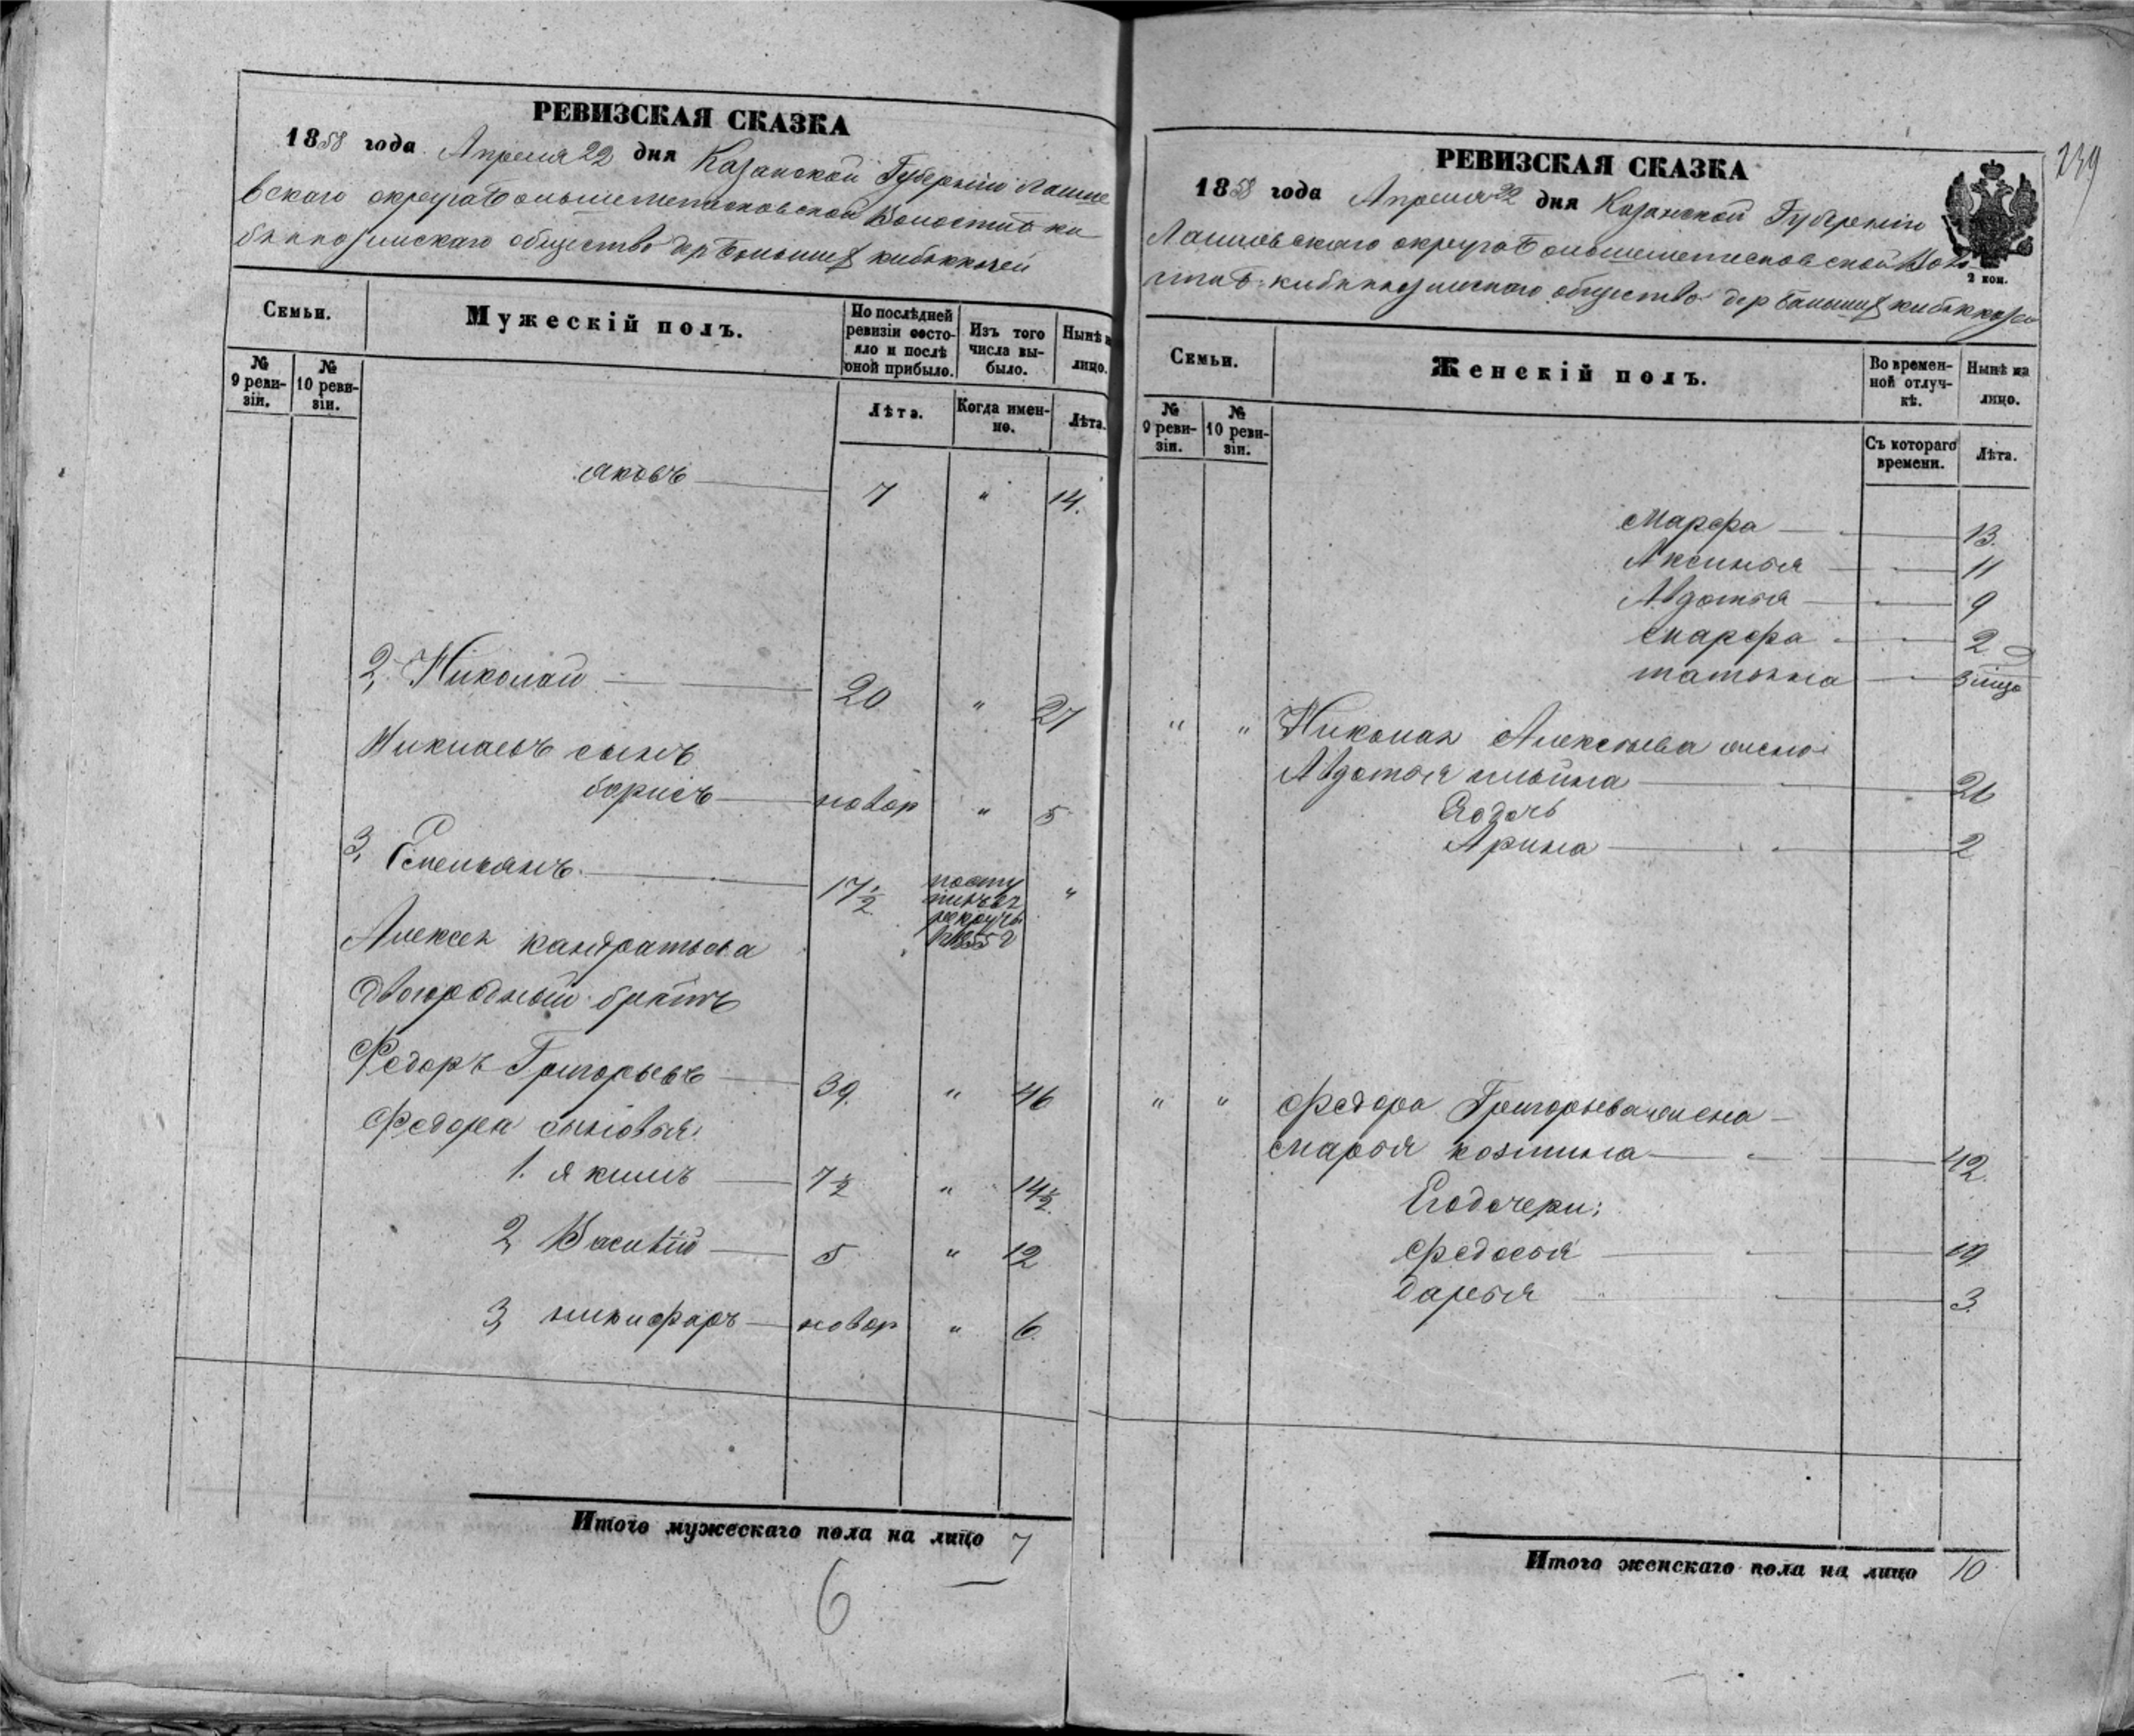 РЕВИЗСКАЯ СКАЗКА
1858 года Апреля 22 дня Казанской Губернiи Лаише
вскаго округа Большеметесковской Волости ки
бяккозинскаго общества дер Большихъ кибяккозей
Семьи.
Мужескiй полъ.
По послѣдней ревизiи состо-
яло и послѣ оной прибыло.
Изъ того числа вы-
было.
Нынѣ на лицо.
№ 9 реви-
зiи.
№ 10 реви-
зiи.
Лѣта.
Когда имен-
но.
Лѣта.
яковъ 7 " 14.
2, Николай 20 " 27
Никлаевъ сынъ
борисъ новор " 5
3, Емельянъ 17 1/2 посту
пилъ въ
рекруты
въ 1855 г "
Алексея кандратьева
двоюродный братъ
Федоръ Григорьевъ 39. " 46
Федора сыновья:
1. якимъ 7 1/2 " 14 1/2
2, Василiй 5 " 12
3, никифаръ новор " 6.
Итого мужескаго пола на лицо 7
6
239
РЕВИЗСКАЯ СКАЗКА
1858 года Апреля 22 дня Казанской Губернiи
Лаишевскаго округа Большеметесковской Воло
сти кибяккозинскаго общества дер Большихъ кибяккозеи
2 коп.
Семьи.
Женскiй полъ.
Во времен-
ной отлуч-
кѣ.
Нынѣ на лицо.
№ 9 реви-
зiи.
№ 10 реви-
зiи.
Съ котораго времени.
Лѣта.
Марфа 13.
Аксинья 11
Авдотья 9
Марфа 2
татьяна 3
" " Николая Алексѣева жена
Авдотья ильина 26
Его дочь
Арина 2
" " Федора Григорьева жена
Марья козмина 42.
Его дочери:
Федосья 19
Дарья 3.
Итого женскаго пола на лицо 10